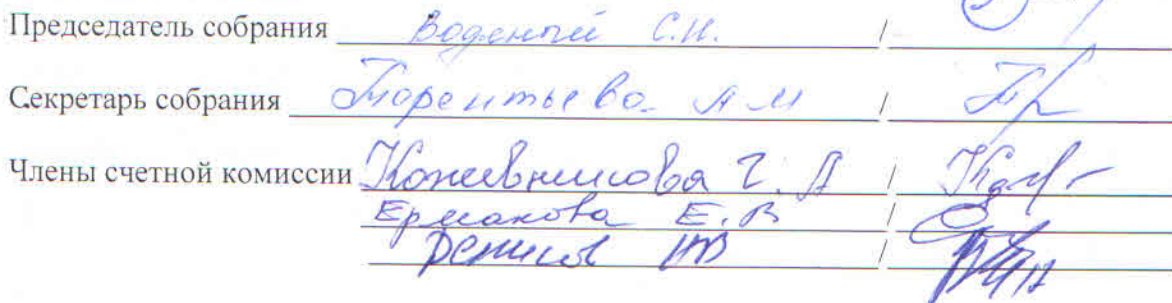 Председатель собрания Водяной С.Н. /
Секретарь собрания Терентьева А М /
Члены счетной комиссии Кожевникова Г. А /
Ермакова Е. В /
Денисов /